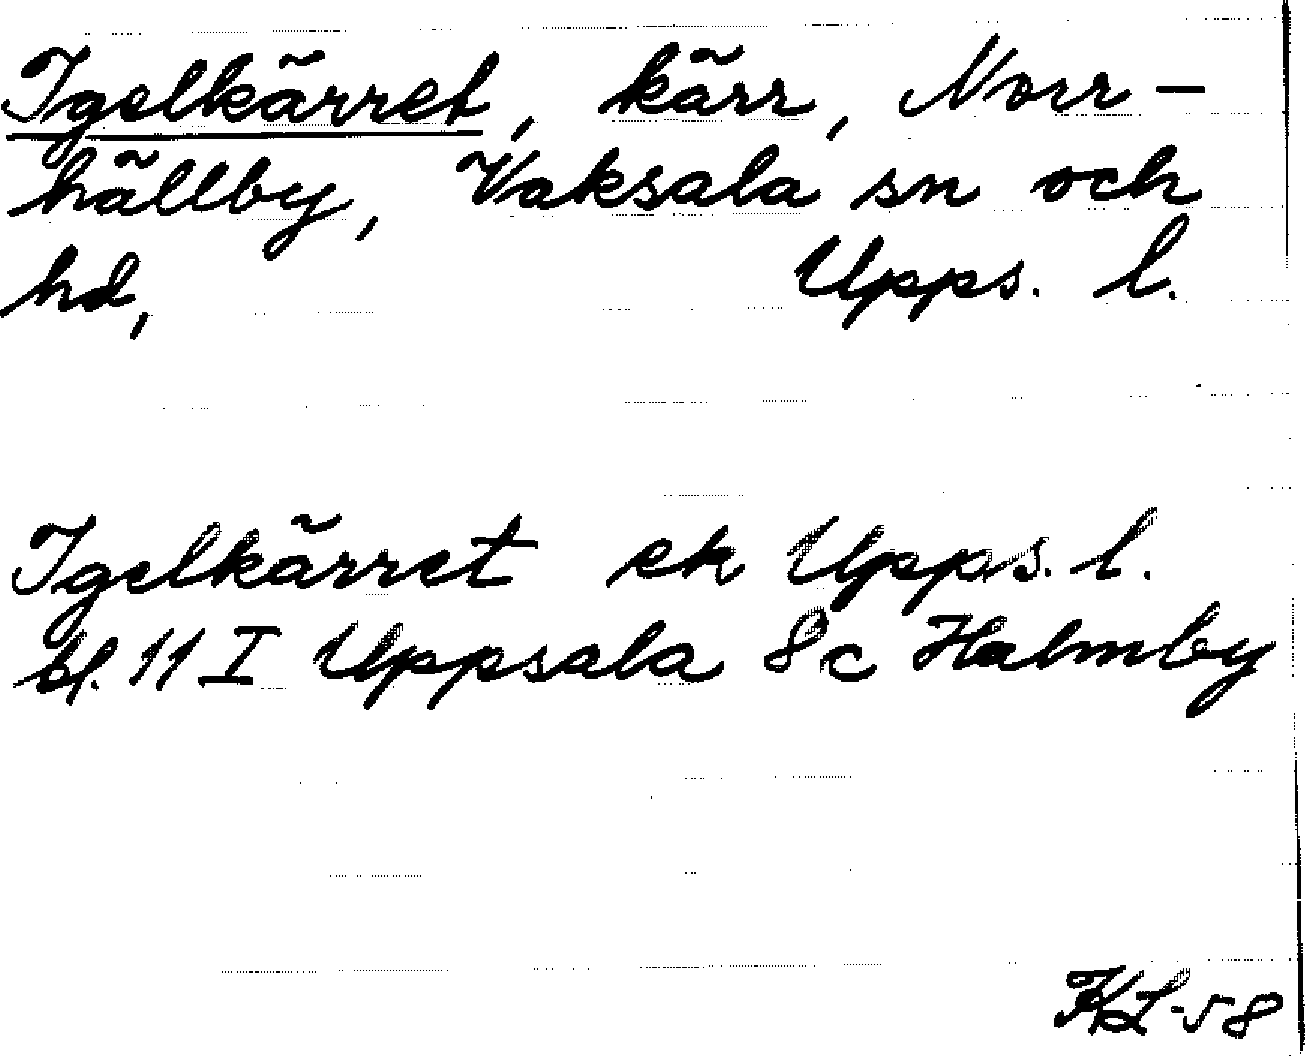 Igelkärret, kärr, Norr-
hällby, Vaksala sn och
hd, Upps. l.
Igelkärret ek Upps. l.
bl. 11 I Uppsala 8c Halmby
KL-58